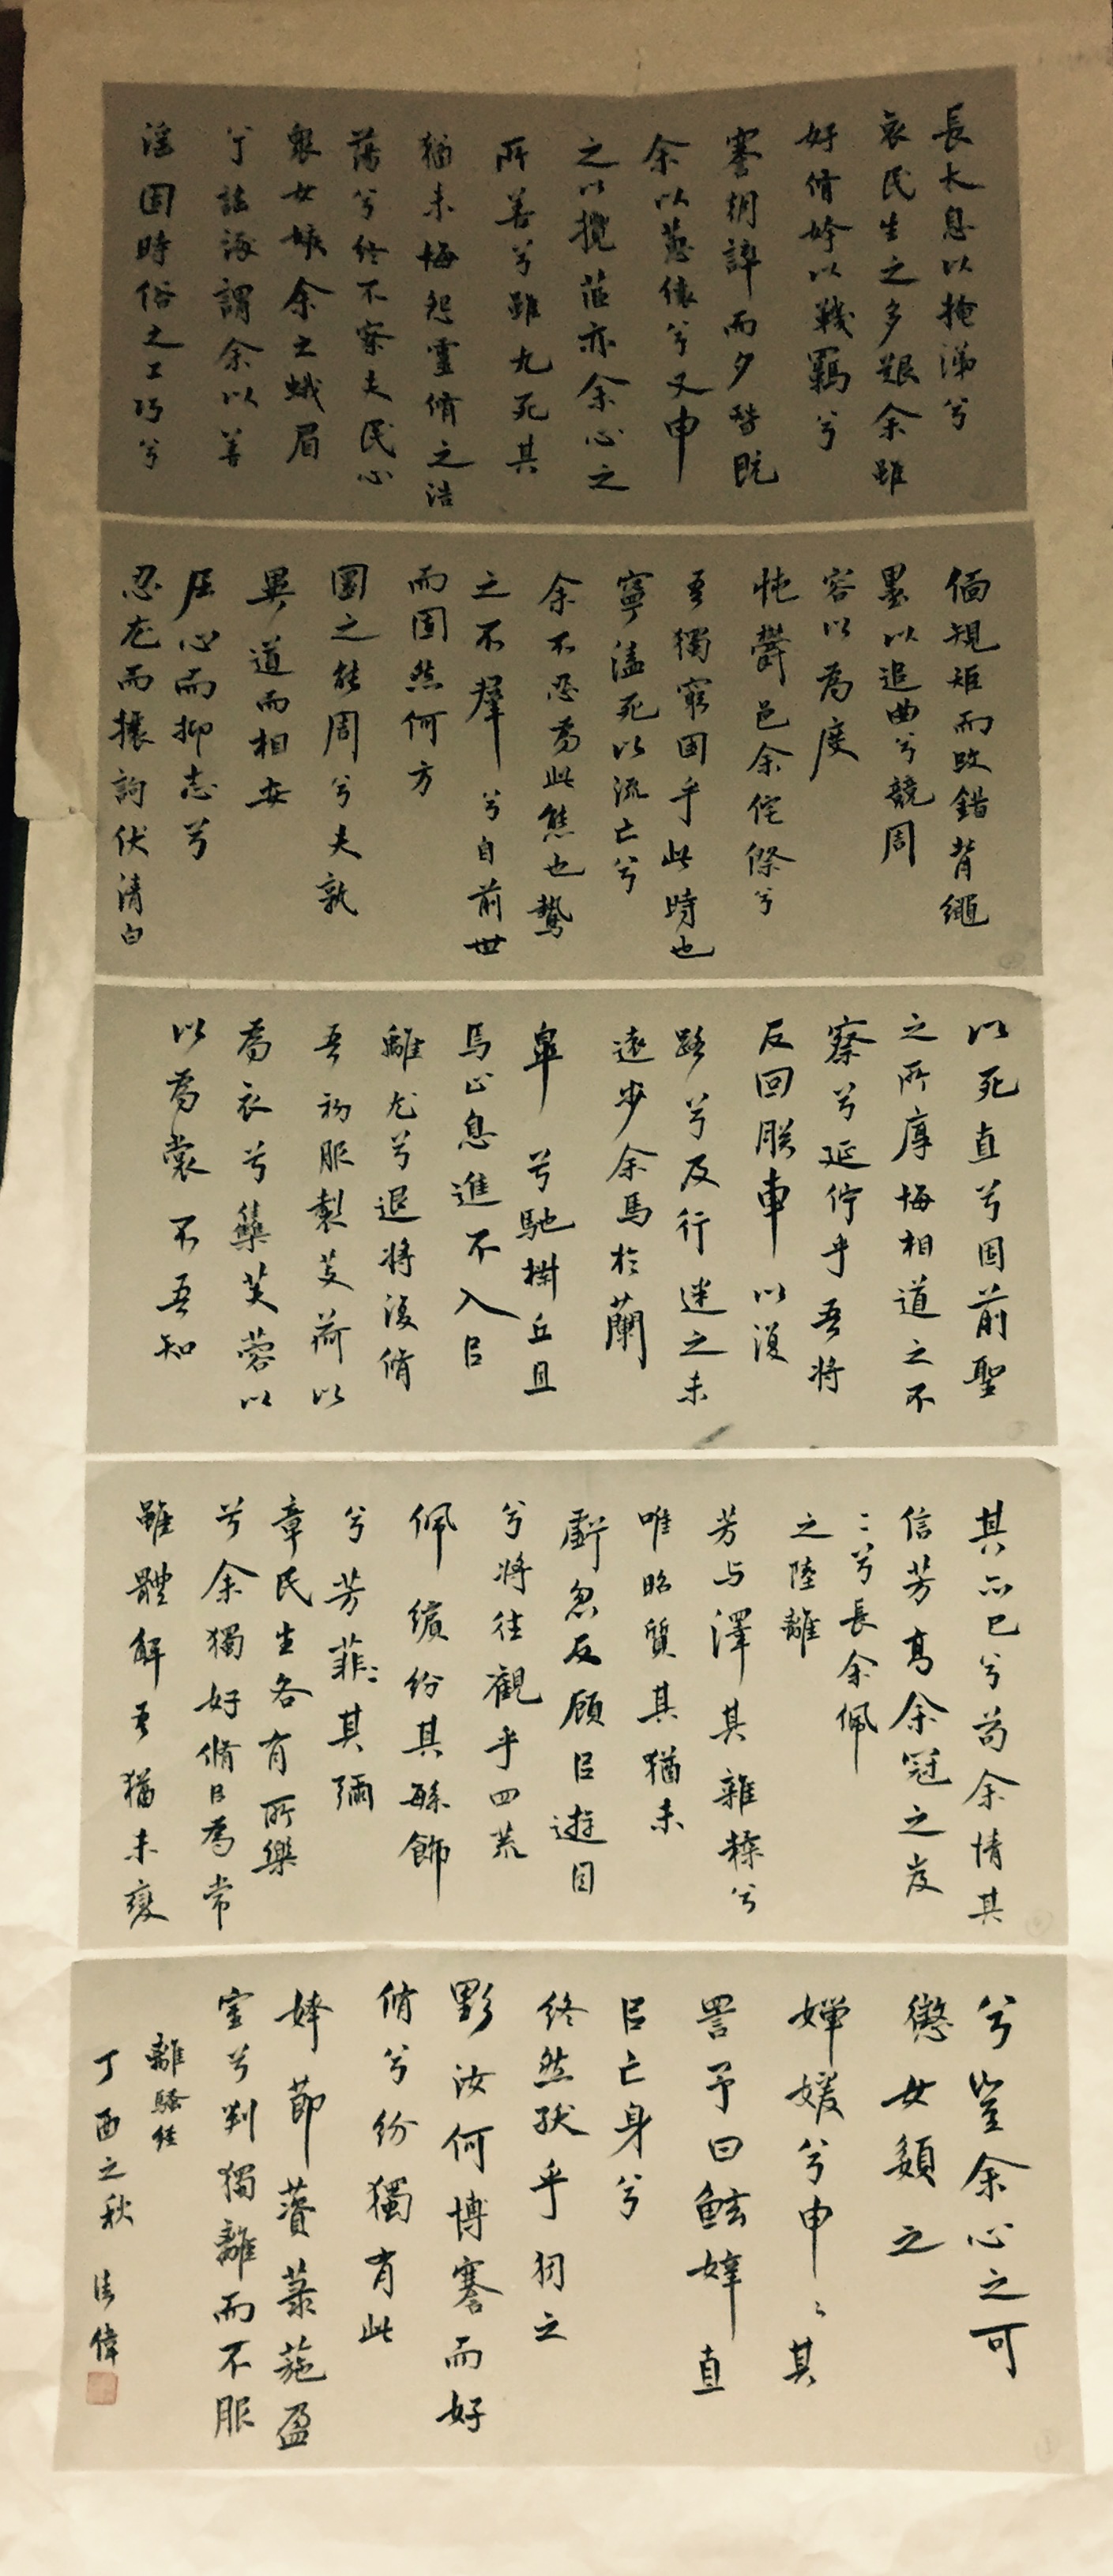 長太息以掩涕兮
哀民生之多艱余雖
好脩姱以鞿羈兮
謇朝誶而夕替既
余以蕙纕兮又申
之以攬茝亦余心之
所善兮雖九死其
猶未悔怨靈脩之浩
蕩兮終不察夫民心
衆女嫉余之蛾眉
兮謠諑謂余以善
淫固時俗之工巧兮
偭規矩而改錯背繩
墨以追曲兮競周
容以為度
忳鬱邑余侘傺兮
吾獨窮困乎此時也
寧溘死以流亡兮
余不忍為此態也鷙
之不羣兮自前世
而固然何方
圜之能周兮夫孰
異道而相安
屈心而抑志兮
忍尤而攘詢伏清白
以死直兮固前聖
之所厚悔相道之不
察兮延佇乎吾將
反回朕車以復
路兮及行迷之未
遠步余馬於蘭
皐兮馳椒丘且
焉止息進不入㠯
離尤兮退將復脩
吾初服製芰荷以
為衣兮集芙蓉以
以為裳不吾知
其亦已兮苟余情其
信芳高余冠之岌
〻兮長余佩
之陸離
芳與澤其雜糅兮
唯昭質其猶未
虧忽反顧㠯遊目
兮將往觀乎四荒
佩繽紛其緐飾
兮芳菲〻其彌
章民生各有所樂
兮余獨好脩㠯為常
雖體解吾猶未變
兮豈余心之可
懲女嬃之
嬋媛兮申〻其
詈予曰鮌婞直
㠯亡身兮
終然殀乎羽之
野汝何博謇而好
脩兮紛獨有此
姱節薋菉葹盈
室兮判獨離而不服
離騷經
丁酉之秋 偉